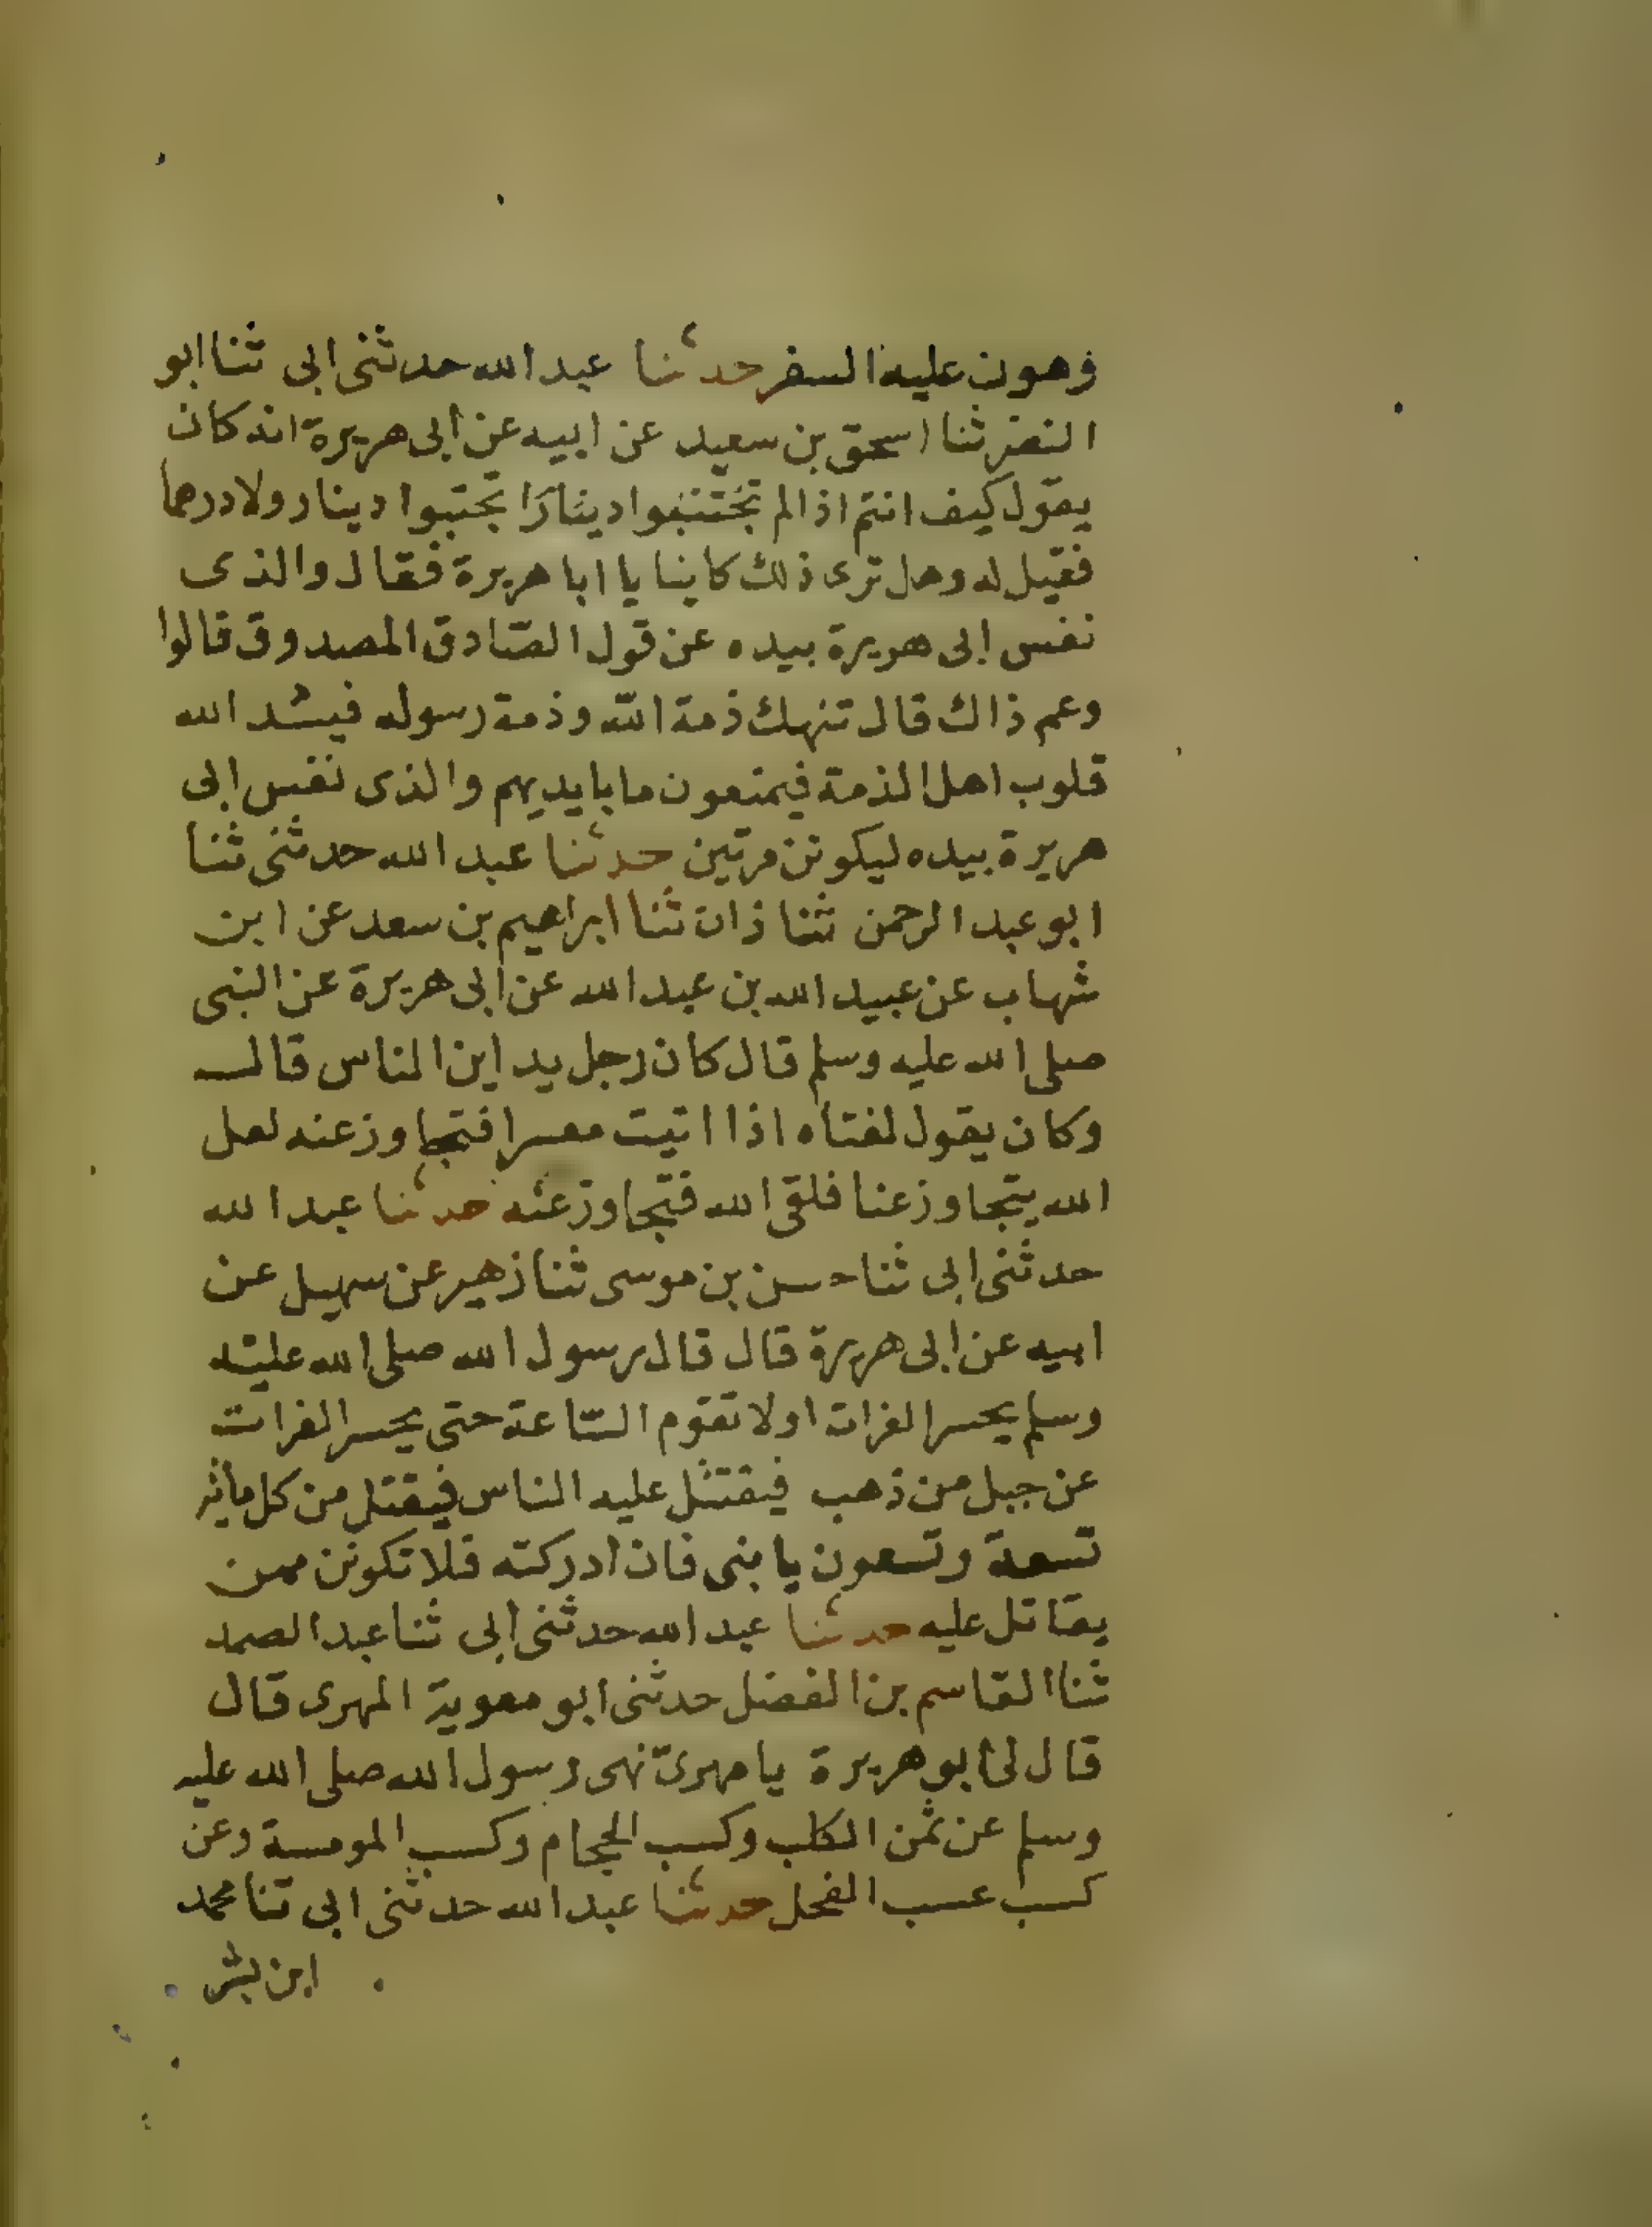 وهون عليه السفر حدثنا عبد الله حدثنى ابى ثنا ابو
النضر ثنا اسحق بن سعيد عن ابيه عن ابى هريرة انه كان
يقول كيف انتم اذا لم تجتنبوا دينارا تجتبوا دينار ولا درهما
فقيل له وهل ترى ذلك كاينا يا ابا هريرة فقال والذى
نفس ابى هريرة بيده عن قول الصّادق المصدوق قالوا
وعم ذاك قال تنهك ذمة الله وذمة رسوله فيشد الله
قلوب اهل الذمة فيمنعون ما بايديهم والذى نفس ابى
هريرة بيده ليكونن مرتين حدثنا عبد الله حدثنى ثنا
ابو عبد الرحمن ثنا ذان ثنا ابراهيم بن سعد عن ابن
شهاب عن عبيد الله بن عبد الله عن ابى هريرة عن النبى
صلى الله عليه وسلم قال كان رجل يداين الناس قال
وكان يقول لفتاه اذا اتيت معسرا فتجاوز عنه لعل
الله يتجاوز عنا فلقى الله فتجاوز عنه حدثنا عبد الله
حدثنى ابى ثنا حسن بن موسى ثنا زهير عن سهيل عن
ابيه عن ابى هريرة قال قال رسول الله صلى الله عليه
وسلم يحسر الفرات او لا تقوم السّاعة حتى يحسر الفرات
عن جبل من ذهب فيقتتل عليه الناس فيقتل من كل مأية
تسعة وتسعون يا بنى فان ادركته فلا تكونن ممن
يقاتل عليه حدثنا عبد الله حدثنى ابى ثنا عبد الصمد
ثنا القاسم بن الفضل حدثنى ابو معوية المهرى قال
قال لى ابو هريرة يا مهرىّ نهى رسول الله صلى الله عليه
وسلم عن ثمن الكلب وكسب الحجام وكسب المومسة وعن
كسب عسب الفحل حدثنا عبد الله حدثنى ابى ثنا محمد
ابن بشر